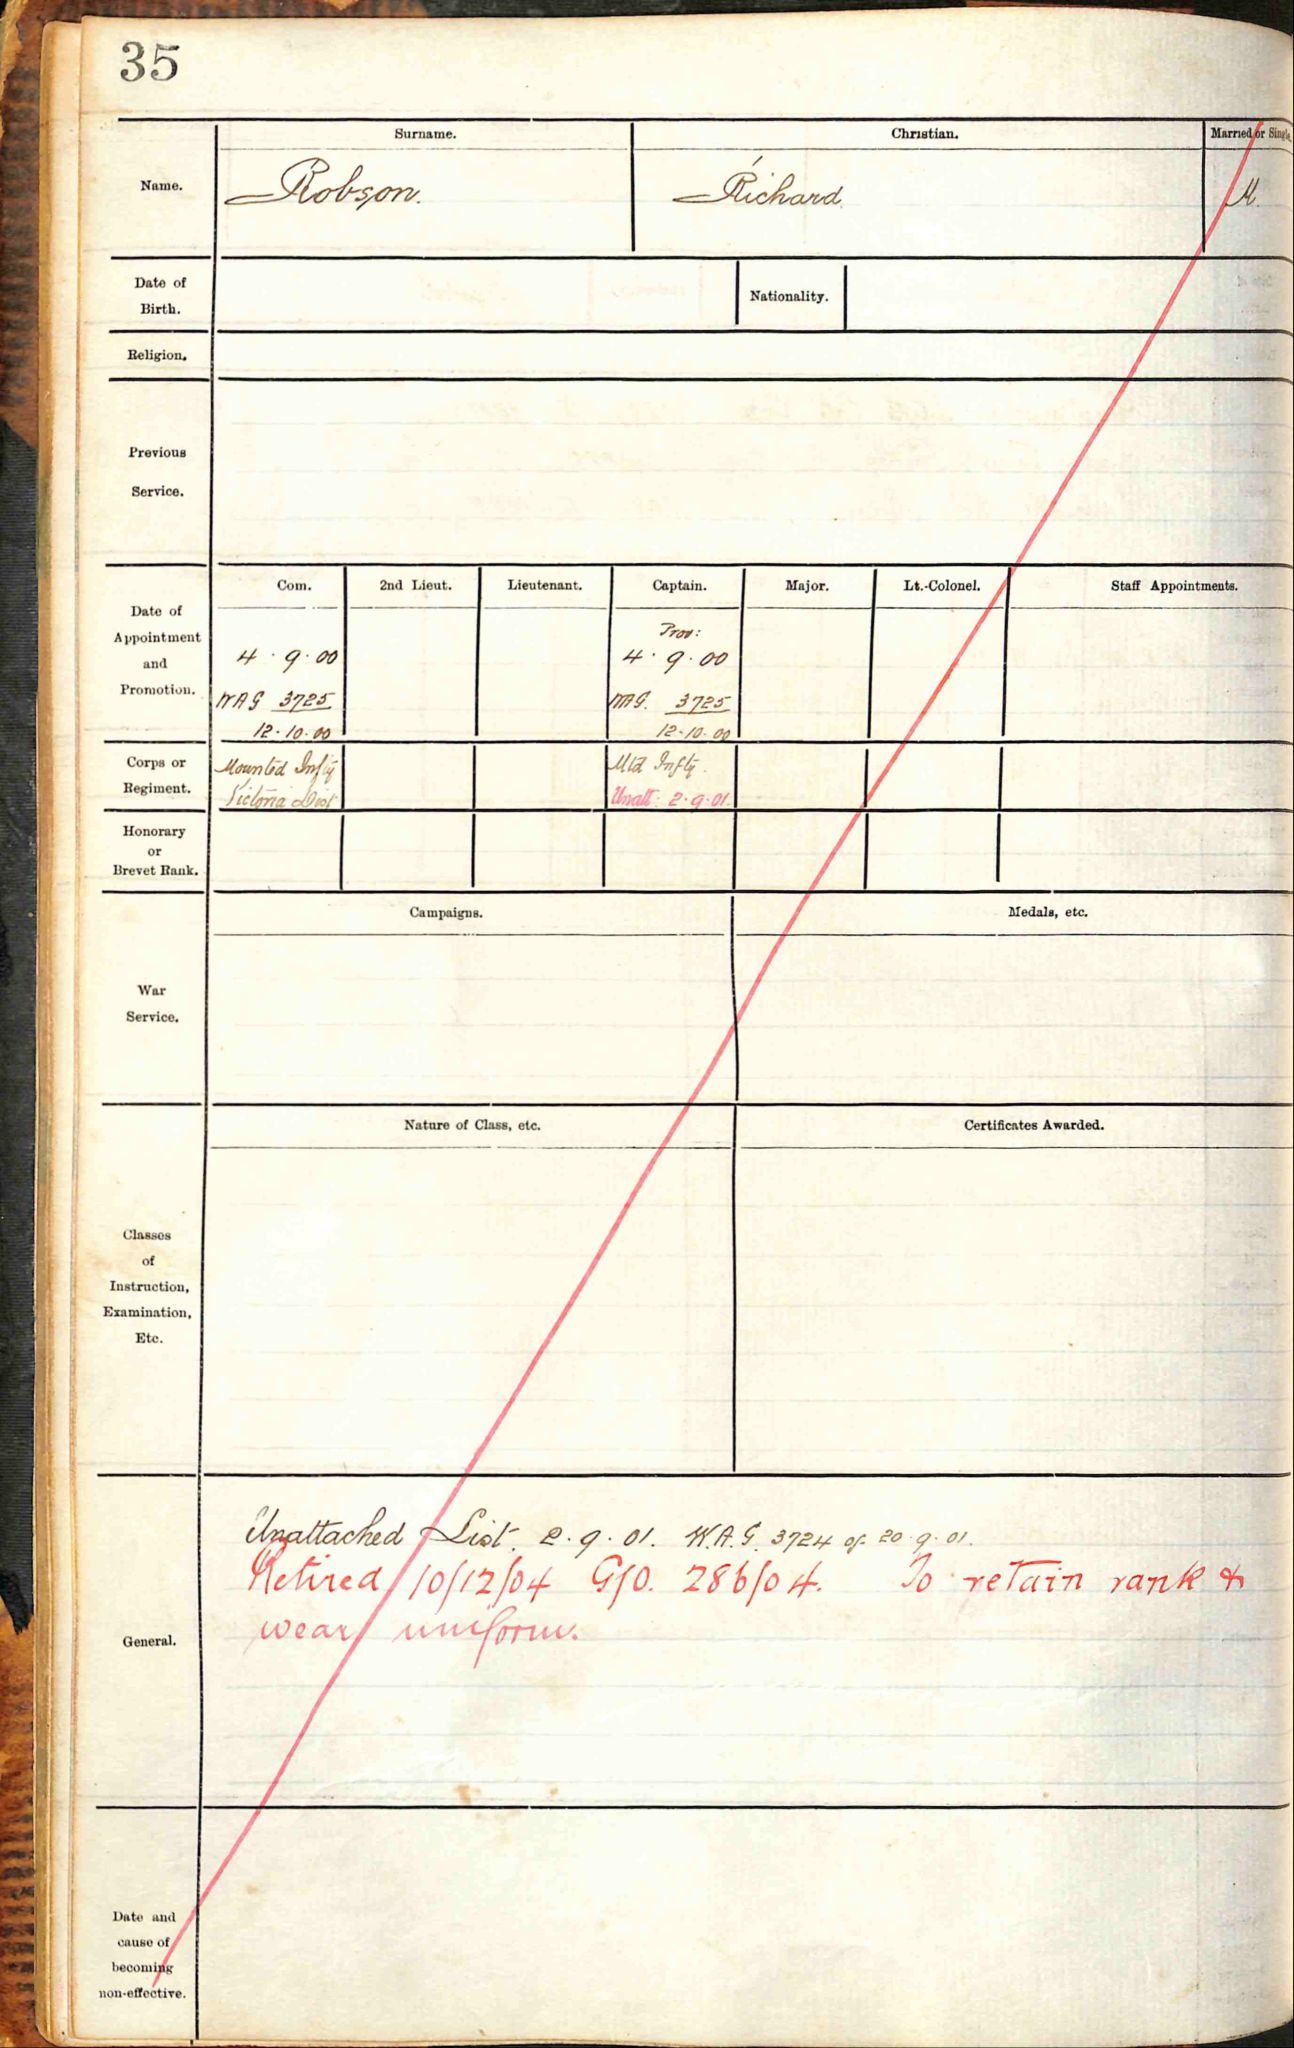 35
Surname. Christian. Married or Single
Name. Robson. Richard. M.
Date of
Birth. Nationality.
Religion.
Previous
Service.
Com. 2nd Lieut. Lieutenant. Captain. Major. Lt.-Colonel. Staff Appointments.
Date of
Appointment
and
Promotion.
Prov:
4 . 9 . 00 4 . 9 . 00
3725 3725
12.10.00 12.10.00
Corps or
Regiment.
Mounted Infty Mtd Infty.
Victoria Dist Unatt: 2.9.01.
Honorary
or
Brevet Rank.
Campaigns. Medals, etc.
War
Service.
Nature of Class, etc. Certificates Awarded.
Classes
of
Instruction,
Examination,
Etc.
General.
Unattached List. 2.9.01. 3724 of 20.9.01.
Retired 10/12/04 G/O. 286/04. To retain rank &
wear uniform.
Date and
cause of
becoming
non-effective.